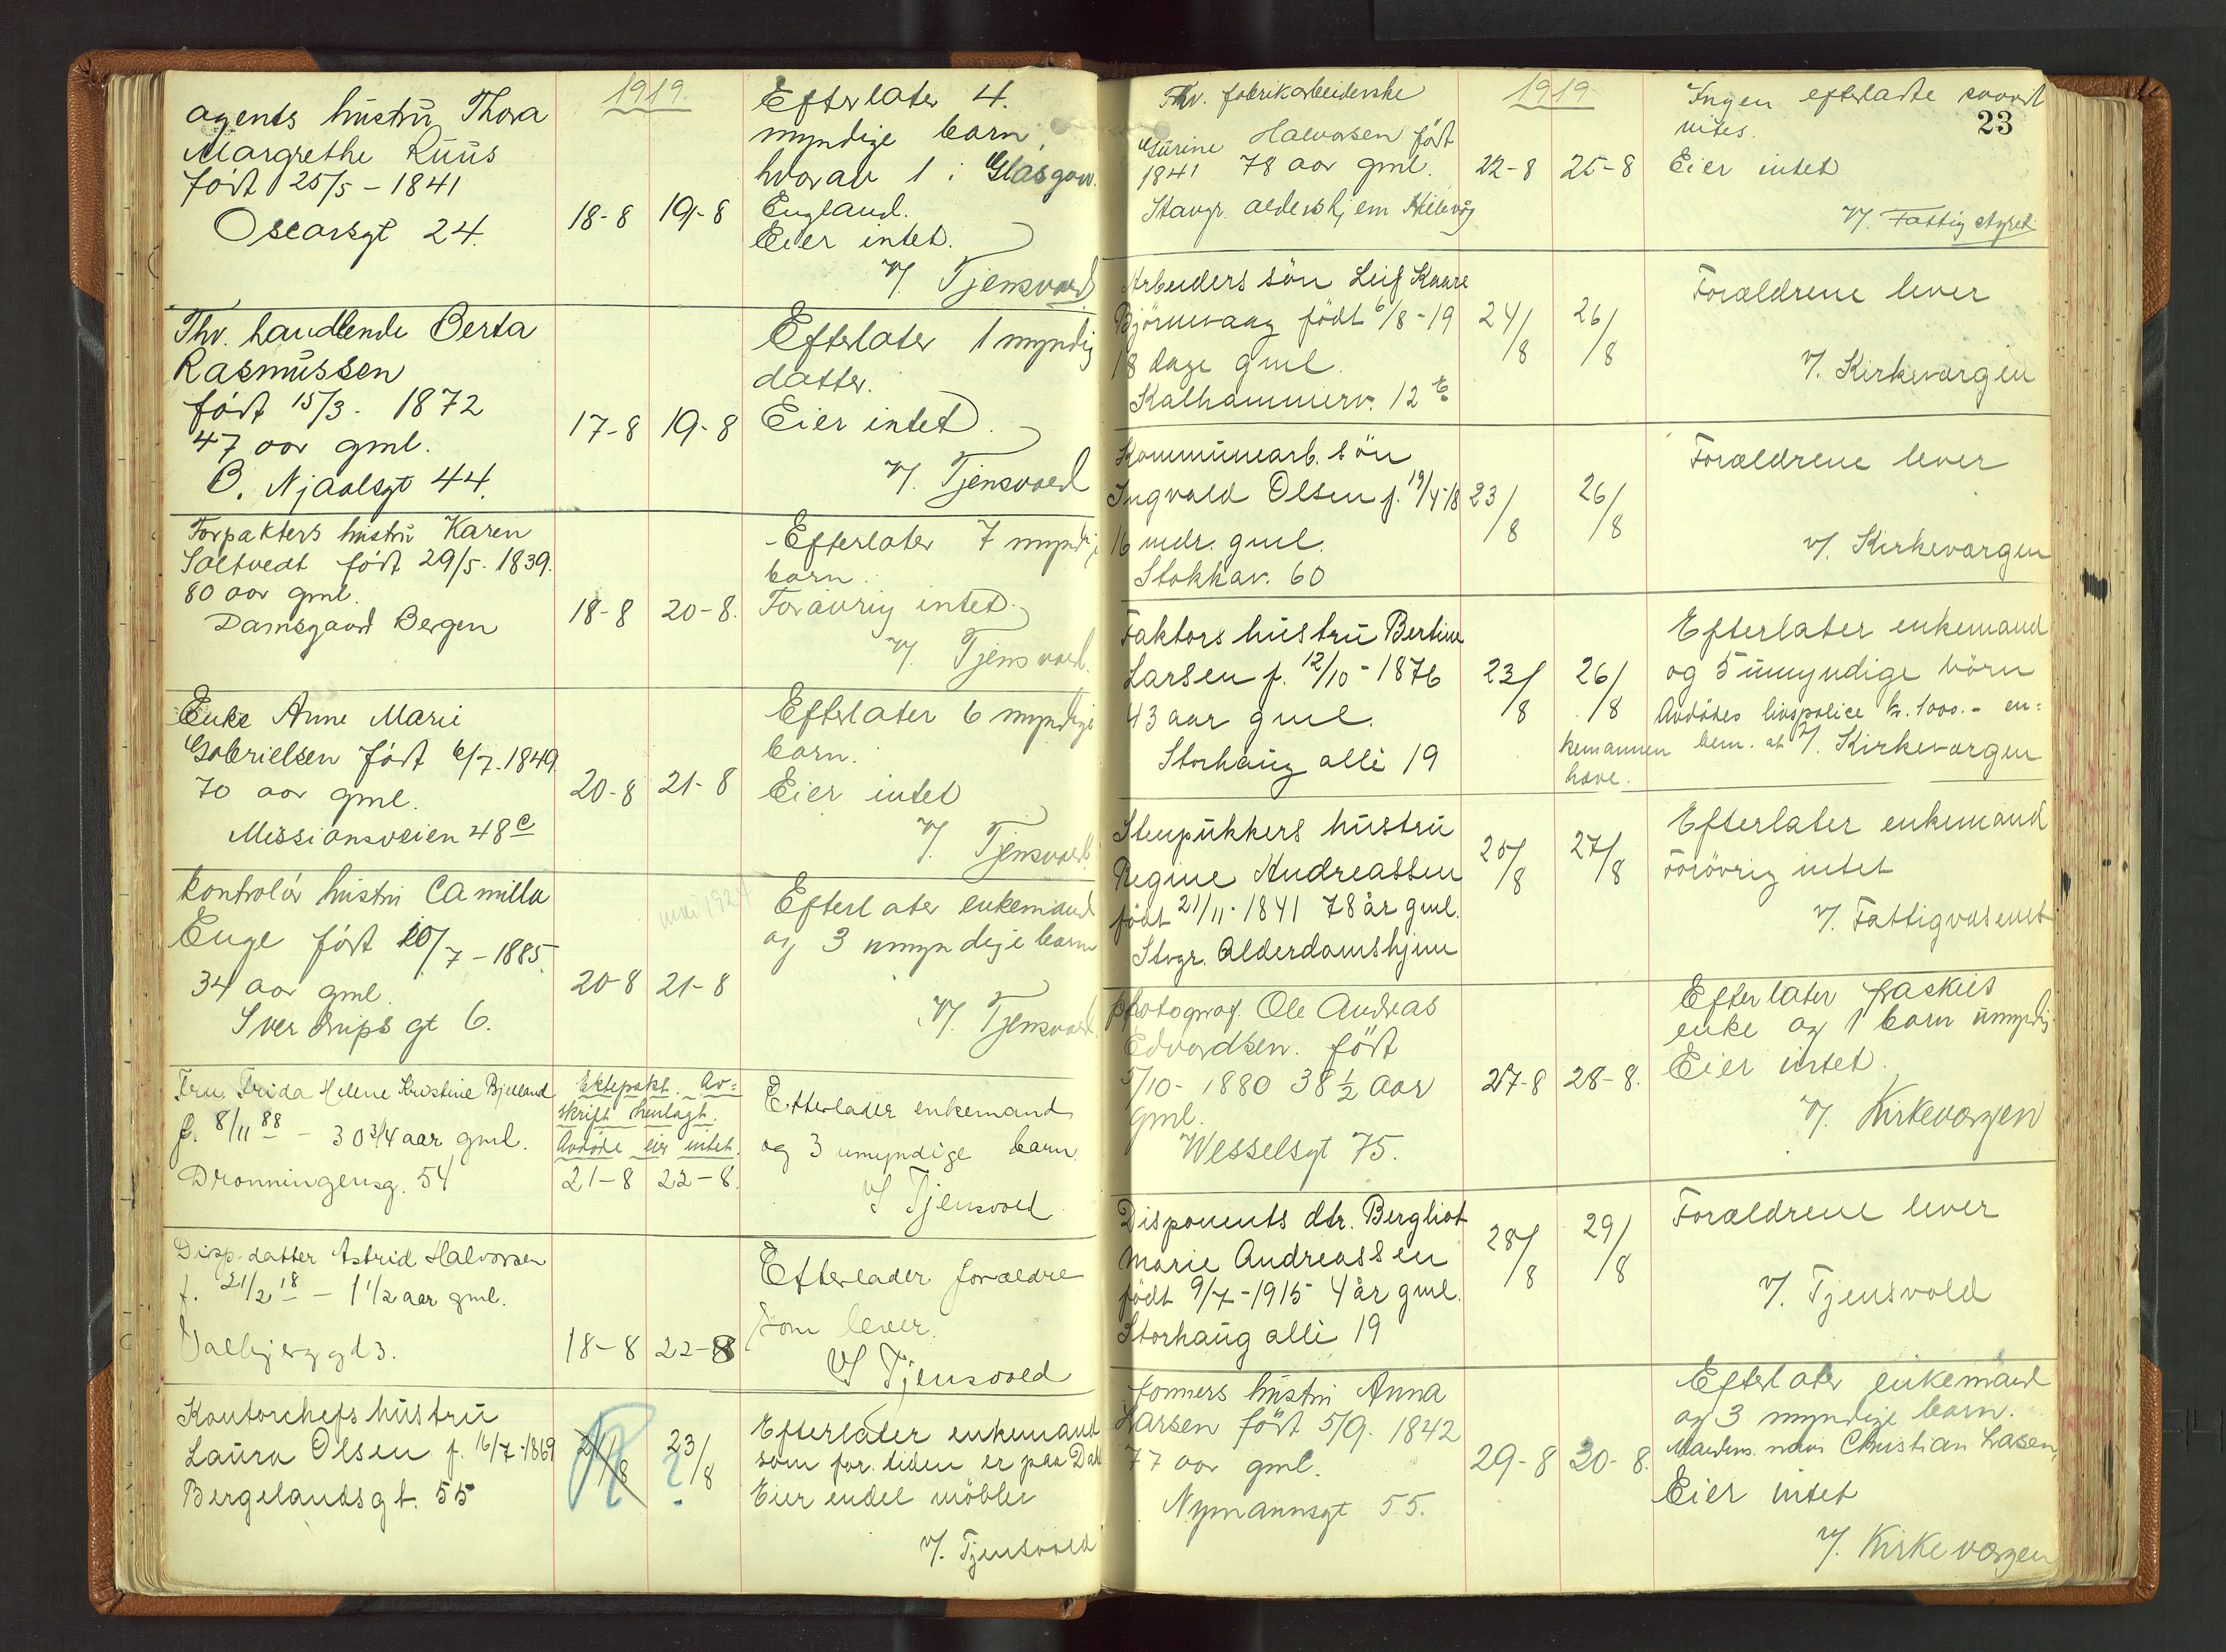 1919.
agents hustru Thora
Margrethe Ruus
født 25/5 - 1841
Oscarsgt 24.
18-8 19-8
Efterlater 4.
myndige barn,
hvorav 1 i Glasgow.
England.
Eier intet.
V. Tjensvold
Fhv. handlende Berta
Rasmussen
født 15/3 - 1872
47 aar gml.
O. Njaalsgt 44.
17-8 19-8
Efterlater 1 myndig
datter.
Eier intet.
V. Tjensvold
Forpakters hustru Karen
Saltvedt født 29/5. 1839.
80 aar gml.
Damsgaard Bergen
18-8 20-8.
Efterlater 7 myndig
barn.
Forøvrig intet.
V. Tjensvold.
Enke Anne Marie
Gabrielsen født 6/7. 1849.
70 aar gml.
Missionsveien 48 c
20-8 21-8
Efterlater 6 myndige
barn.
Eier intet
V. Tjensvold
Kontrolør hustru Camilla
Enge født 10/7 - 1885.
34 aar gml.
Sverdrups gt 6.
mai 1927
20-8 21-8
Efterlater enkemand
og 3 umyndige barn
V. Tjensvold.
Fru Frida Helene Kristine Bjelland
f. 8/11 88 - 30 3/4 aar gml.
Dronningensg. 54
Ektepakt. Av=
skrift henlagt.
Avdøde eier intet.
21-8 22-8.
Efterlader enkemand
og 3 umyndige barn
V Tjensvold
Disp. datter Astrid Halvorsen
f. 21/2 18 - 1 1/2 aar gml.
Valbjerggd 3.
18-8 22-8
Efterlader forældre
som lever.
V Tjensvold
Kontorchefs hustru
Laura Olsen f. 16/7-1869
Bergelandsgt. 55
21/8 23/8
Efterlater enkemand
som for tiden er paa Dale
Eier endel møbler
V. Tjensvold
1919
23
Fhv. fabrikarbeiderske
Gurine Halvorsen født
1841 78 aar gml.
Stavgr. aldershjem Hillevåg
22-8 25-8
Ingen efterlatte saavidt
vites.
Eier intet
V. Fattigstyret
Arbeiders søn Leif Kaare
Bjørnevaag født 6/8-19
18 dage gml.
Kalhammerv. 12 b
24/8 26/8
Forældrene lever
V. Kirkevergen
Kommunearb. søn
Ingvald Olsen f. 19/4-18
16 mdr. gml.
Stokkav. 60
23/8 26/8
Forældrene lever
V. Kirkevergen
Faktors hustru Bertine
Larsen f. 12/10 - 1876
43 aar gml.
Storhaug alle 19
23/8 26/8
Efterlater enkemand
og 5 umyndige børn
Avdødes livspolice kr. 1000.- en=
kemannen bem. at V. Kirkevergen
have.
Stenpukkers hustru
Regine Andreassen
født 21/11-1841 78 år gml.
Stvgr. Alderdomshjem
25/8 27/8
Efterlater enkemand
Forøvrig intet
V. Fattigvesenet
photograf. Ole Andreas
Edvardsen. født
5/10 - 1880 38 1/2 aar
gml.
Wesselsgt 75.
27-8 28-8.
Efterlater fraskilt
enke og 1 barn umyndig
Eier intet.
V. Kirkevergen
Disponents dtr. Bergliot
Marie Andreassen
født 9/7-1915 4 år gml.
Storhaug alle 19
28/8 29/8
Forældrene lever
V. Tjensvold
formers hustru Anna
Larsen født 5/9. 1842
77 aar gml.
Nymannsgt 55.
29-8 30-8.
Efterlater enkemand
og 3 myndige barn.
Mandens navn Christian Lasen,
Eier intet
V. Kirkevergen